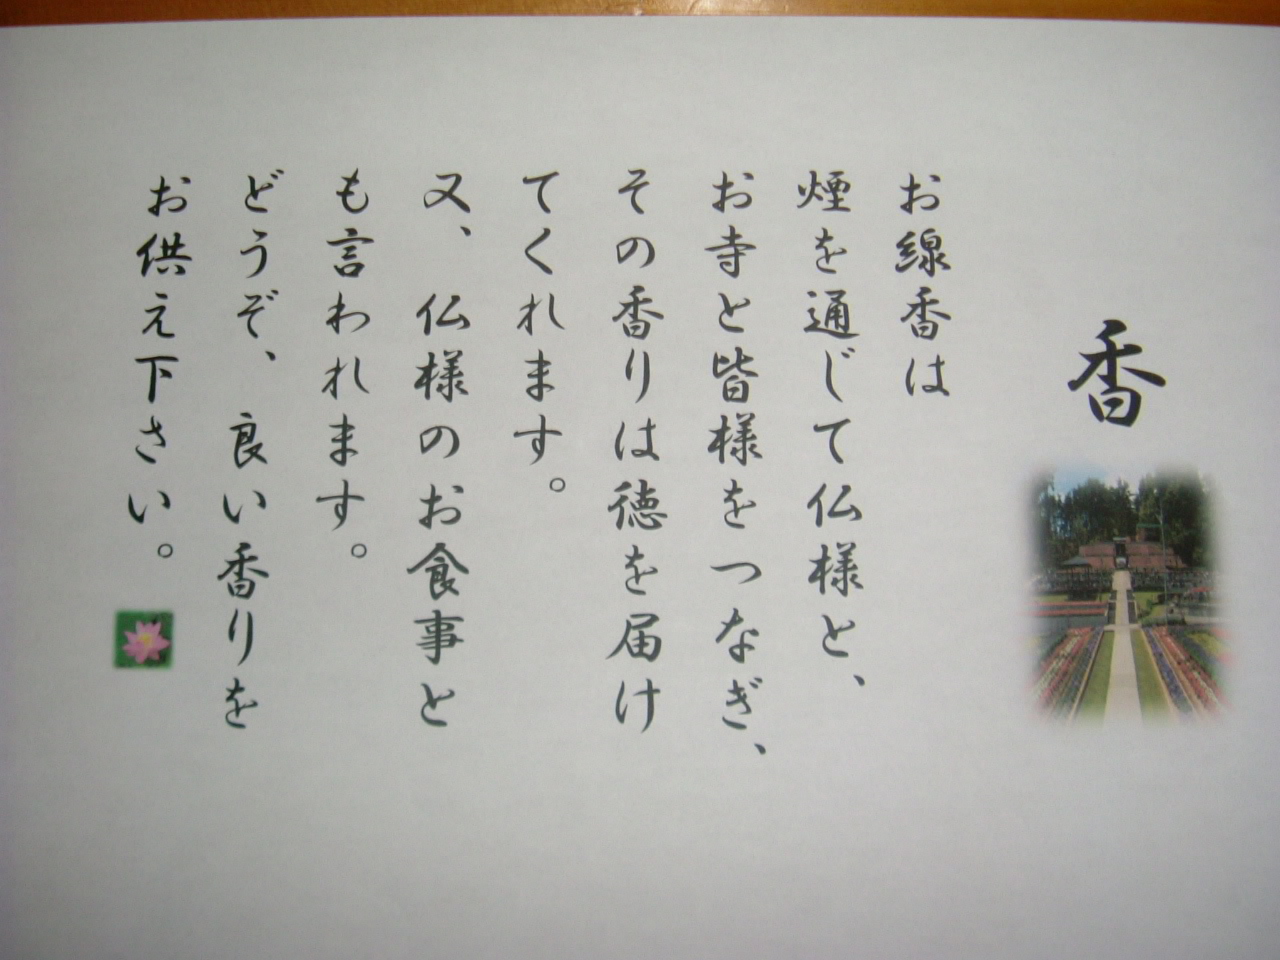 香
お線香は
煙を通じて仏様と、
お寺と皆様をつなぎ、
その香りは徳を届け
てくれます。
又、仏様のお食事と
も言われます。
どうぞ、良い香りを
お供え下さい。